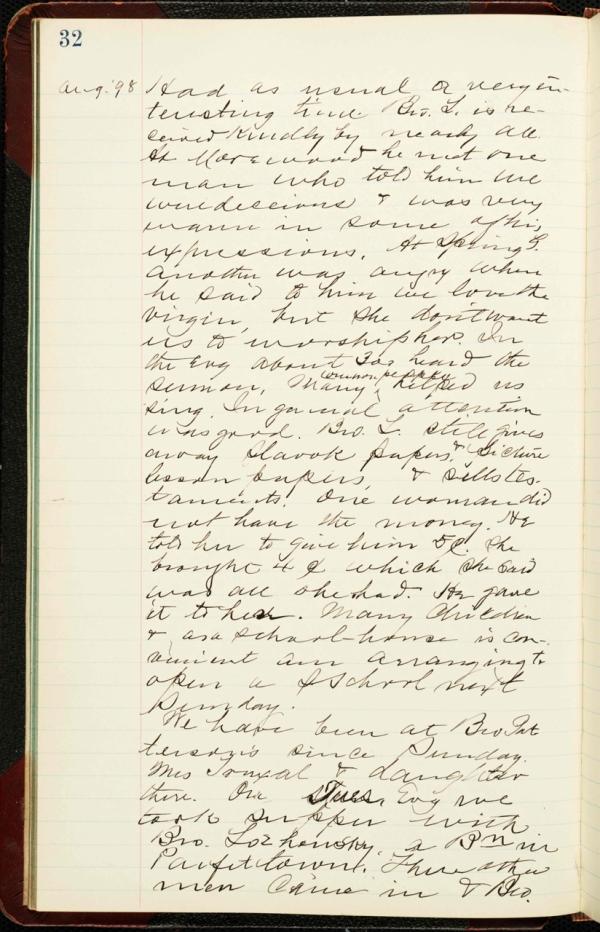 32
Aug. '98 Had as usual a very in-
teresting time. Bro. L. is re-
ceived kindly by nearly all.
At Morewood he met one
man who told him we
were & was very
warm in some of his
expressions. At Spring G.
another was angry when
he said to him we love the
virgin, but she dont want
us to worship her. In
the Evg about 30 heard the
sermon, Many common people helped us
sing. In general attention
was good. Bro. L. still gives
away Slavok papers, & Picture
lesson papers, & sells tes-
taments. One woman did
not have the money. He
told her to give him 5¢. She
brought 4¢ which she said
was all she had. He gave
it to her. Many Children
& as a school-house is con-
venient am arranging to
open a S School next
Sunday.
We have been at Bro Pat
terson's since Sunday.
Mrs & daughter
there. On Tues. Evg we
took supper with
Bro. a Bⁿ in
town. Three other
men Came in & Bro.